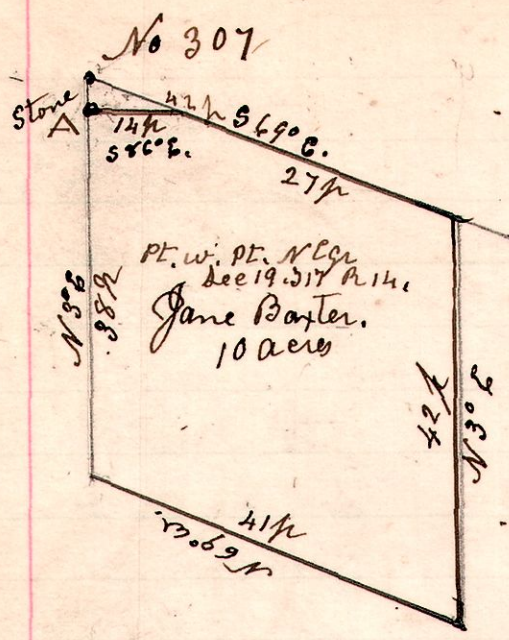 No 307
Stone
A
42p
S 69° E.
14p
S 86° E.
27p
Pt. W. Pt. N E Qr
Sec 19. T 17 R 14.
Jane Baxter.
10 acres
N 3° E
38p
42p
N 3° E
41p
N 69° W.